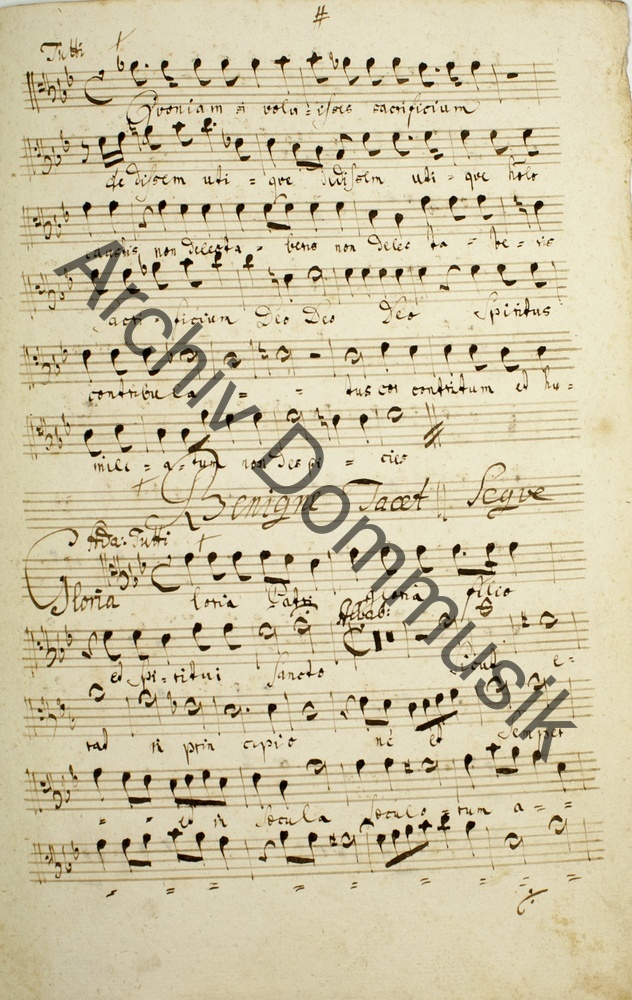 Tutti
Quoniam si volu = isses sacrificium
de dissem uti = que dedissem uti = que holo
caustis non delecta = beris non delec ta = be = ris
sacri = ficium Deo Deo Deo Spiritus
contribula = = tus cor contritum et hu =
mili = a = tum non des pi = cies
Benigne Tacet || Segue
Ada: Tutti
Gloria loria Patri gloria filio
et Spi = ritui Sancto Sicut e =
rat in prin cipio et Semper
= = et in Secula Seculo = rum a = =
= = = = = = =
Archiv Dommusik